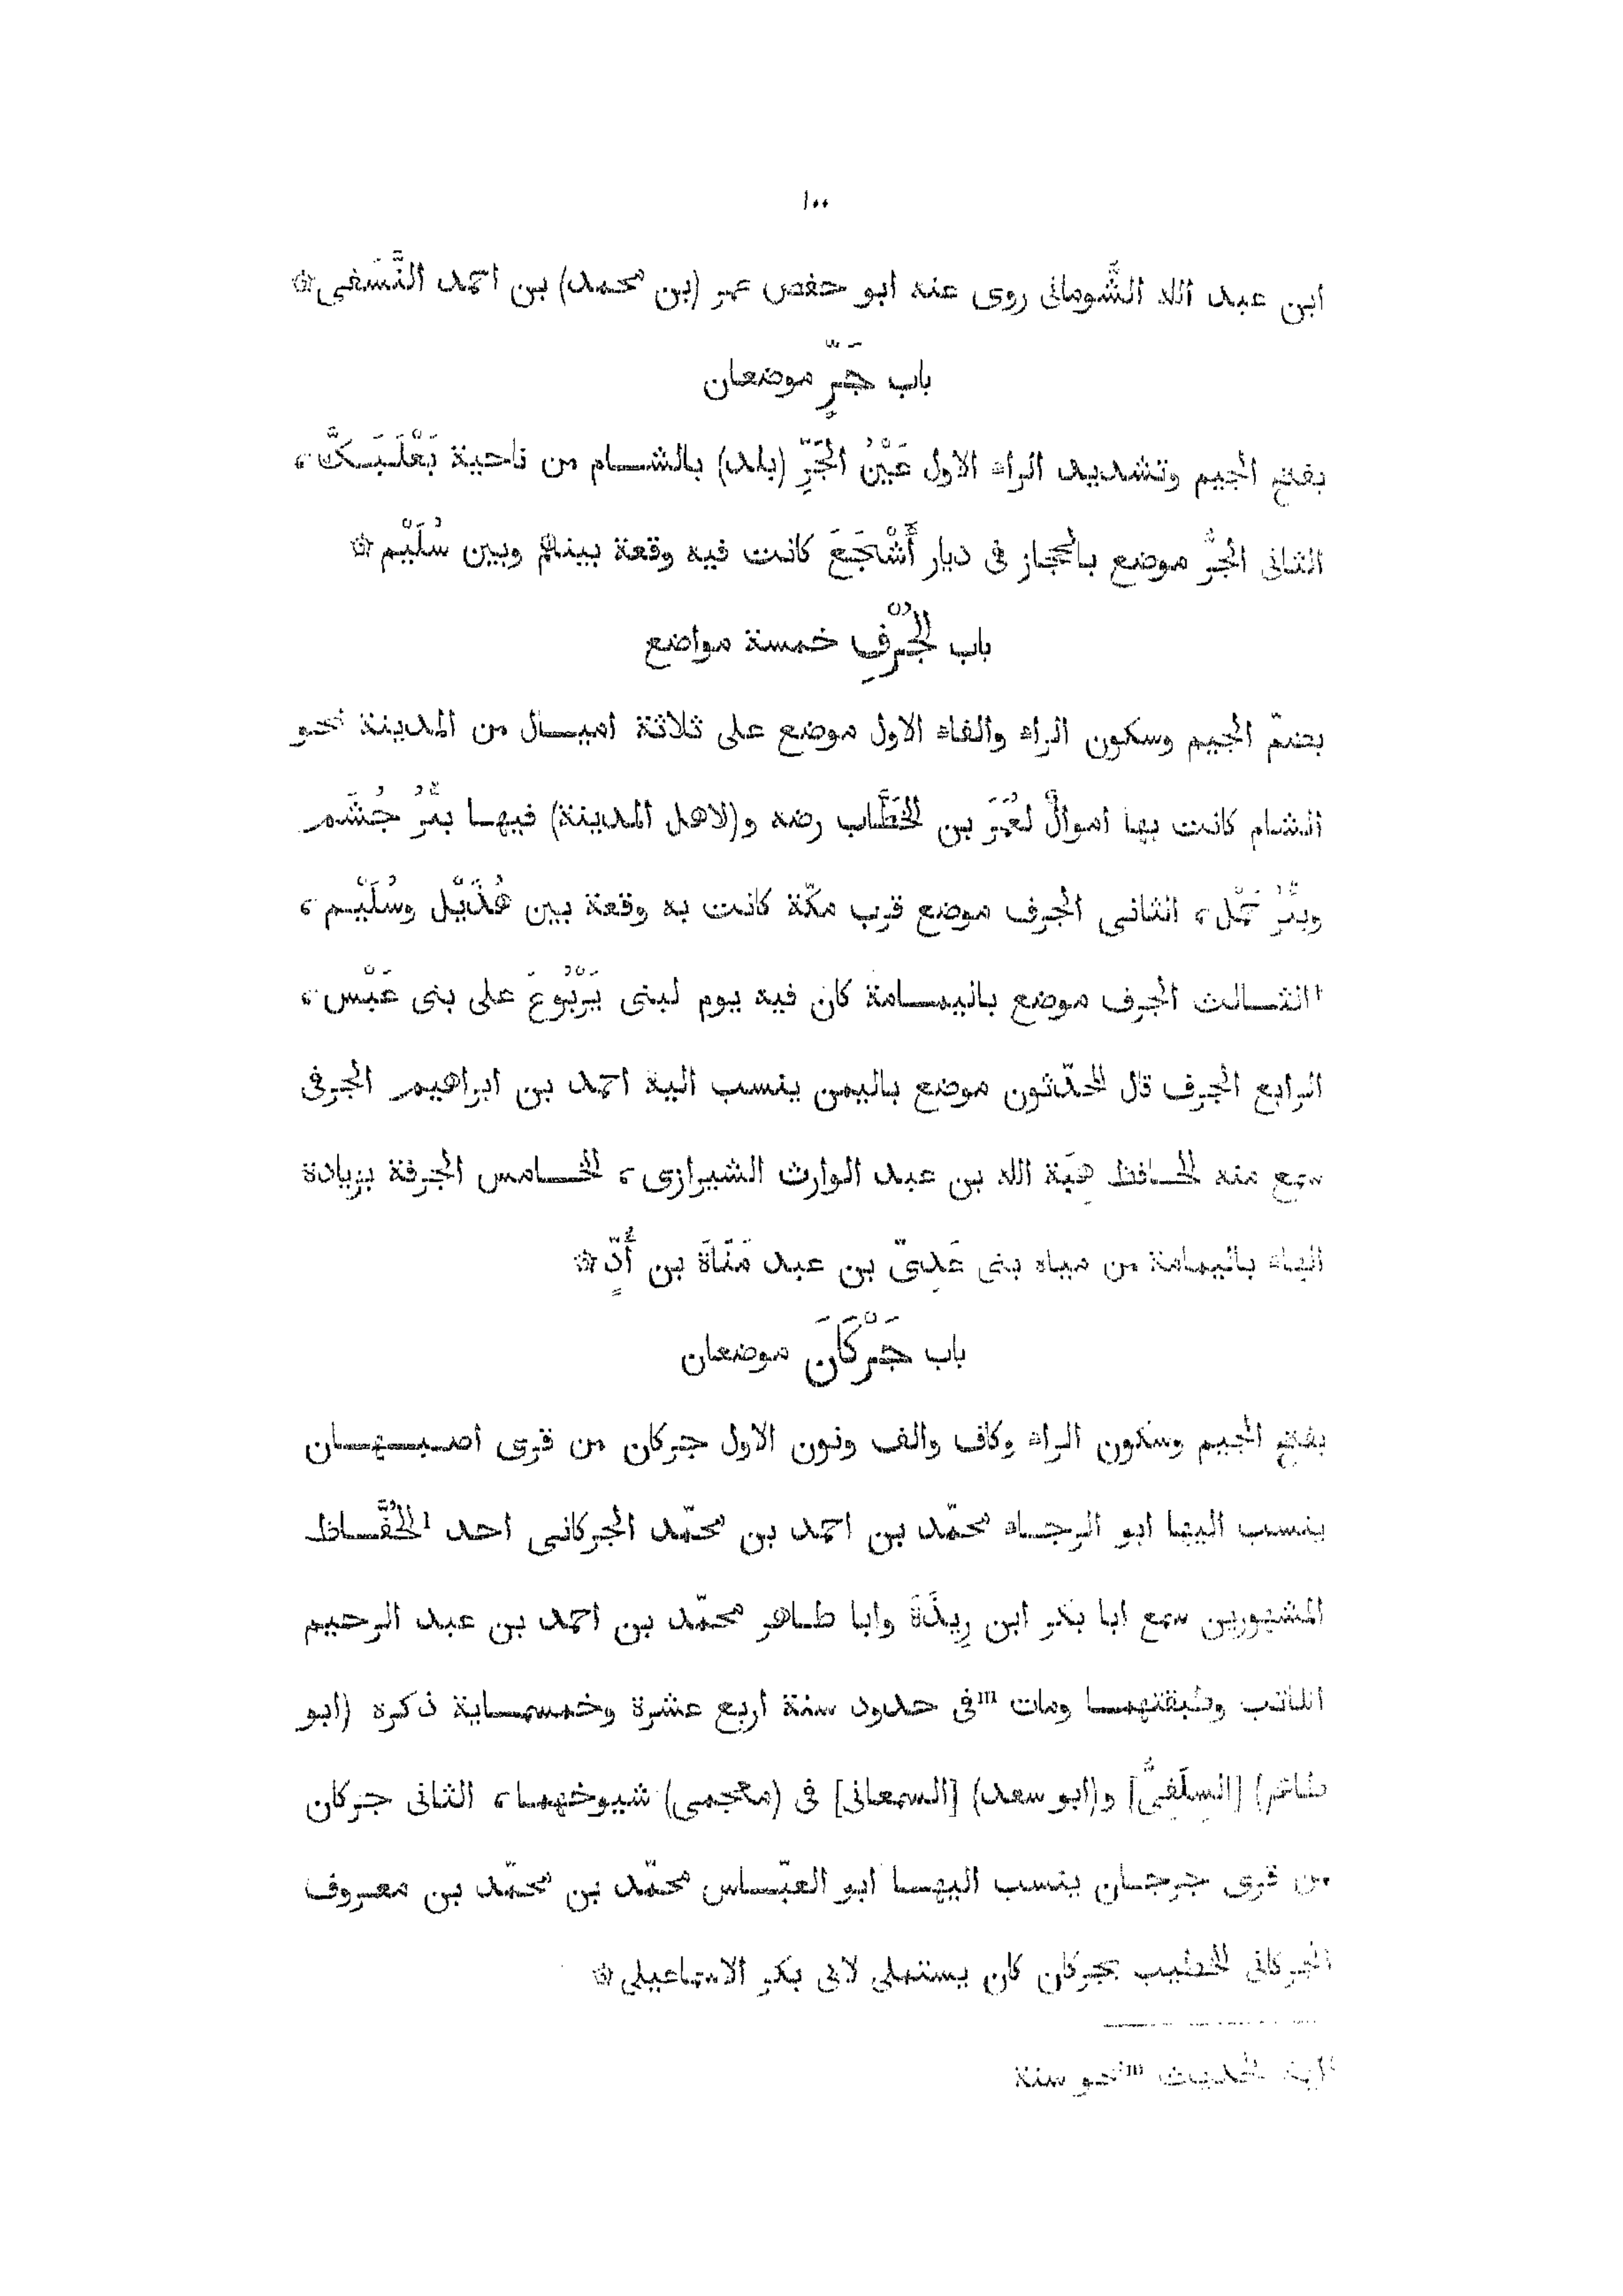 ١٠٠
ابن عبد الله الشُّومانى روى عنه ابو حفص عمر (بن محمد) بن احمد النَّسَفى ۞
باب جَرٍّ موضعان
بفتح الجيم وتشديد الراء الاول عَيْنُ الجَرِّ (بلد) بالشام من ناحية بَعْلَبَكَّ،
الثانى الجَرُّ موضع بالحجاز فى ديار أَشْجَعَ كانت فيه وقعة بينهم وبين سُلَيْم ۞
باب الجُرْفِ خمسة مواضع
بضمّ الجيم وسكون الراء والفاء الاول موضع على ثلاثة اميال من المدينة نحو
الشام كانت بها اموالٌ لعُمَرَ بن الخَطَّاب رضه و(لاهل المدينة) فيها بئرُ جُشَم
وبئرُ جَمَل، الثانى الجرف موضع قرب مكّة كانت به وقعة بين هُذَيْل وسُلَيْم،
الثالث الجرف موضع باليمامة كان فيه يوم لبنى يَرْبُوعَ على بنى عَبْس،
الرابع الجرف قال المحدّثون موضع باليمن ينسب الية احمد بن ابراهيم الجرفى
سمع منه الحافظ هِبَة الله بن عبد الوارث الشيرازى، الخامس الجرفة بزيادة
الهاء باليمامة من مياه بنى عَدِىّ بن عبد مَنَاةَ بن أُدٍّ ۞
باب جَرْكَانَ موضعان
بفتح الجيم وسكون الراء وكاف والف ونون الاول جركان من قرى اصبهان
ينسب اليها ابو الرجاء محمّد بن احمد بن محمّد الجركانى احد l الحُفَّاظ
المشهورين سمع ابا بكر ابن رِيذَةَ وابا طاهر محمّد بن احمد بن عبد الرحيم
الكاتب وطبقتهما ومات m فى حدود سنة اربع عشرة وخمسماية ذكره (ابو
طاهر) [السِلَفِىُّ] و(ابو سعد) [السمعانى] فى (معجمى) شيوخهما، الثانى جركان
من قرى جرجان ينسب اليها ابو العبّاس محمّد بن محمّد بن معروف
الجركانى الخطيب بجركان كان يستملى لابى بكر الاسماعيلى ۞
الحديث m نحو سنة